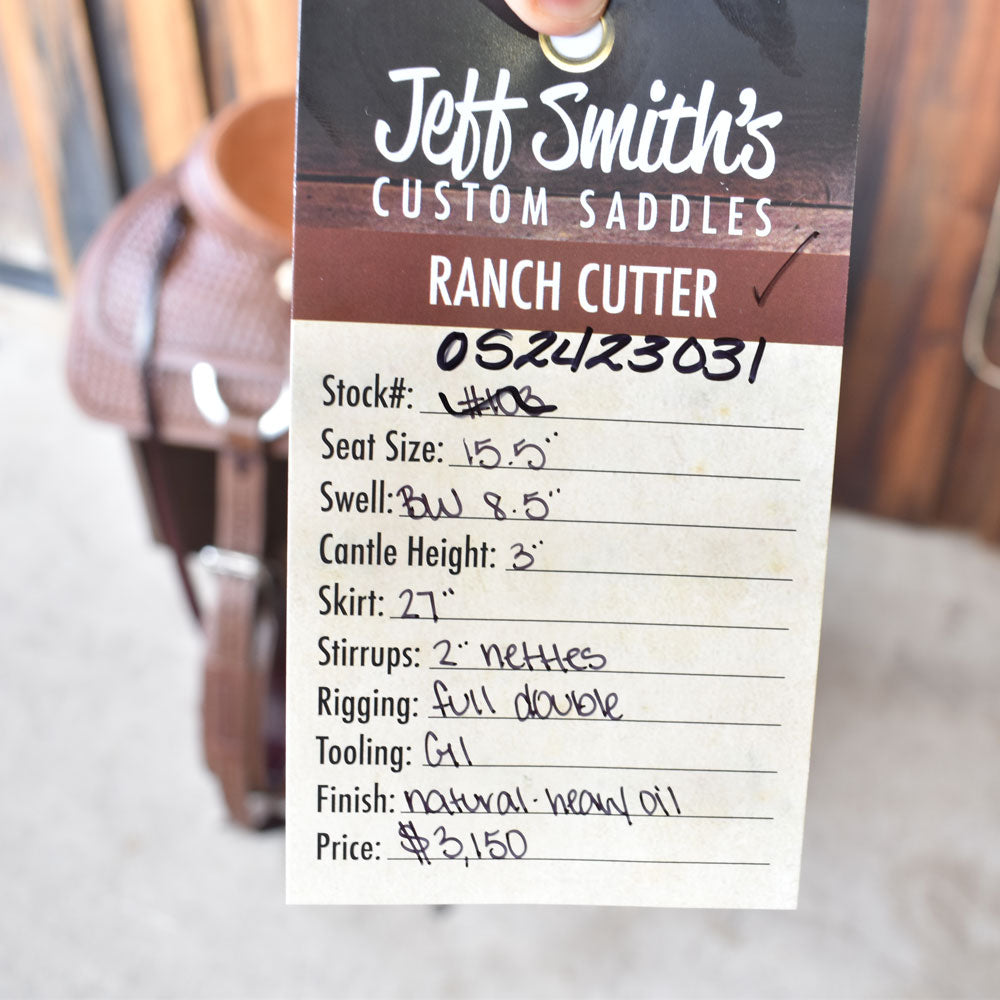 Jeff Smith's
CUSTOM SADDLES
RANCH CUTTER ✓
052423031
Stock#:
Seat Size: 15.5"
Swell: BW 8.5"
Cantle Height: 3"
Skirt: 27"
Stirrups: 2" nettles
Rigging: full double
Tooling: G1
Finish: natural-heavy oil
Price: $3,150